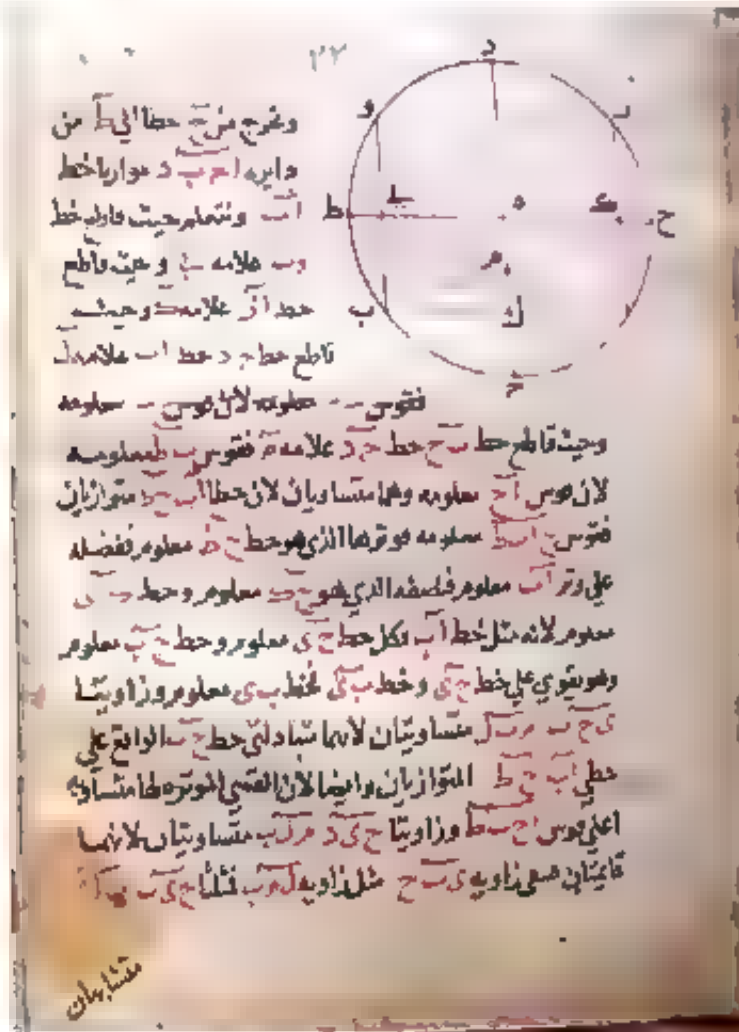 ٢٢
د
و
ر
ط
ه
ح
ب
ل
ونخرج من ح خطا الي ط من
دايره ا ح ب د موازيا خط
ا ب ونتعلم حيث قاطع خط
وب علامه ي وحيث قاطع
خط ا ر علامه ك وحيث
قاطع خط ح د خط ا ب علامه ل
فقوس معلومه لان قوس معلومه
وحيث قاطع خط ب ح خط ح د علامه م فقوس ب ط معلومه
لان قوس ا ح معلومه وهما متساويان لان خطا ا ب ح ط متوازيان
فقوس ح ا ب ط معلومه فوترها الذي هو خط ح ط معلوم ففضله
علي وتر ا ب معلوم فنصفه الذي هو معلوم وخط ي
معلوم لانه مثل خط ا ب فكل خط ح ي معلوم وخط ح ب معلوم
وهو يقوي علي خط ح ي وخط ب ي فخط ب ي معلوم وزاويتا
ي ح ب م ب ل متساويتان لانهما متبادلتي خط ح ب الواقع علي
خطي ا ب ح ط المتوازيان وايضا لان القسي الموتره لها متساويه
اعني قوس ا ح ب ط وزاويتا ح ي ب م ل ب متساويتان لانهما
قايمتان فبقي زاويه ي ب ح مثل زاويه ل م ب فمثلثا ح ي ب ب ل م
متشابهان